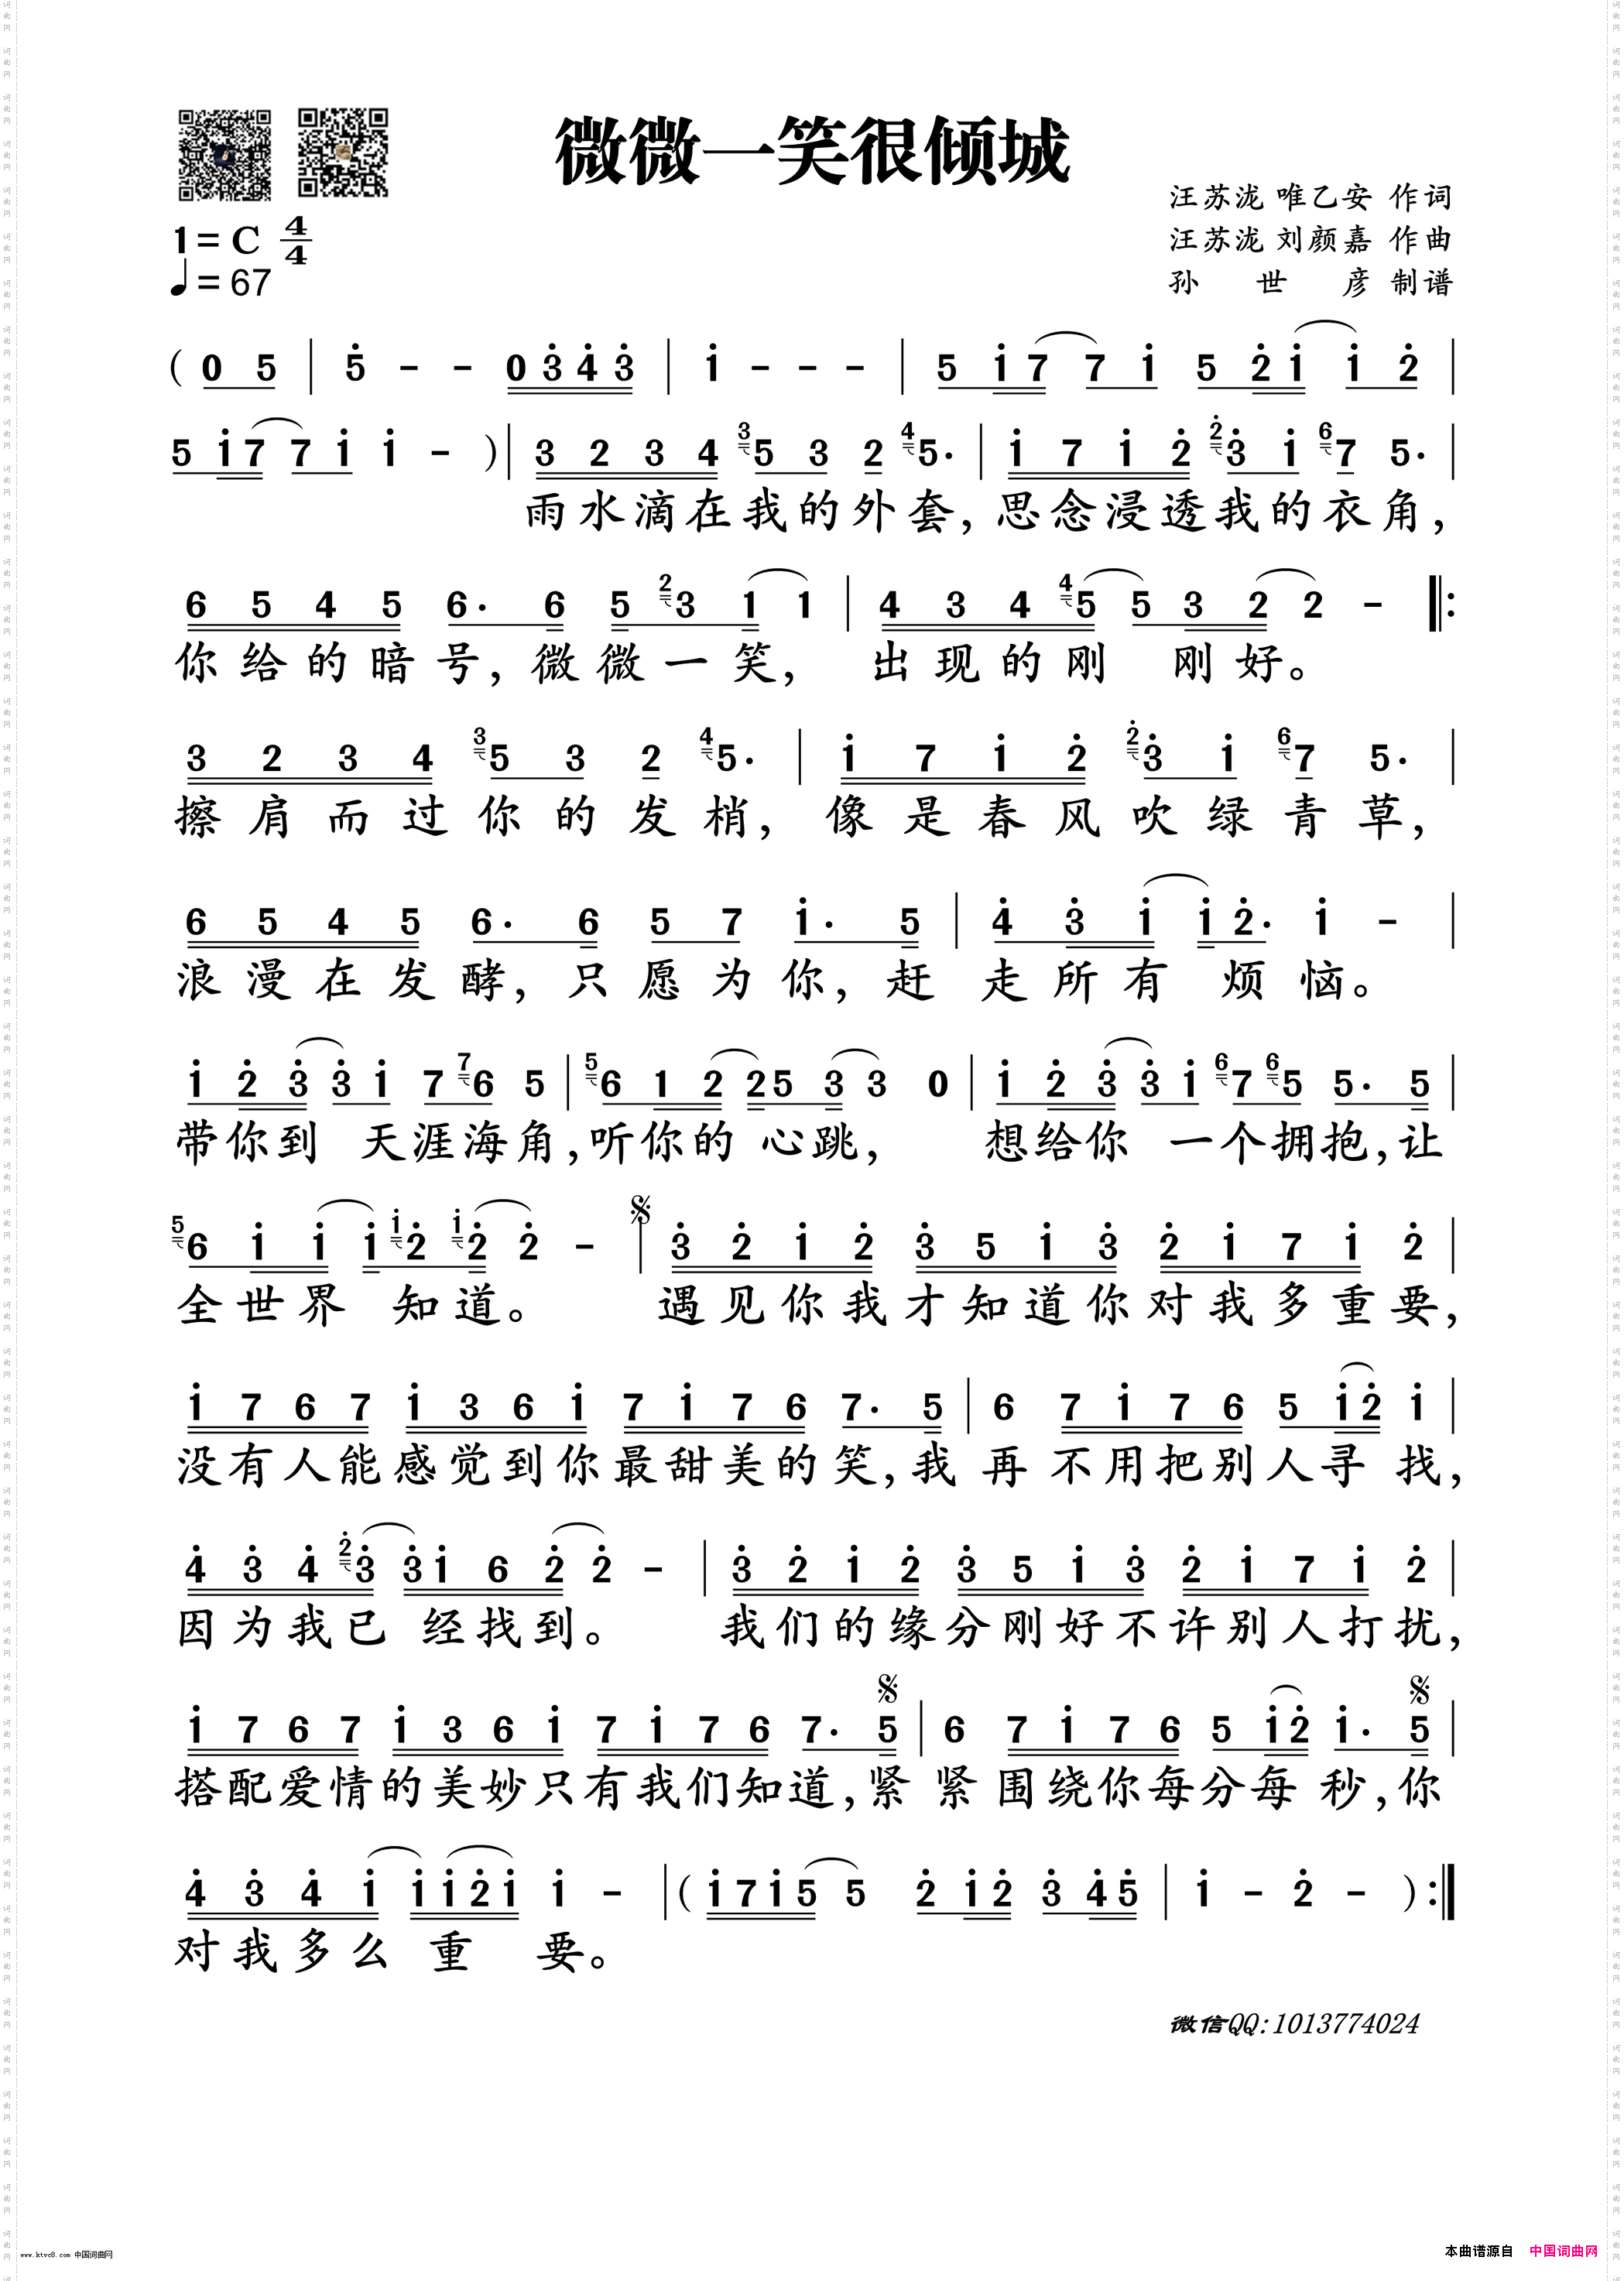 微微一笑很倾城
汪苏泷 唯乙安 作词
汪苏泷 刘颜嘉 作曲
孙 世 彦 制谱
1=C 4/4
♩=67
( 0 5 | 5̇ - - 0 3̇ 4̇ 3̇ | 1̇ - - - | 5 1̇ 7 7 1̇ 5 2̇ 1̇ 1̇ 2̇ |
5 1̇ 7 7 1̇ 1̇ - ) | 3 2 3 4 3 5 3 2 4 5. | 1̇ 7 1̇ 2̇ 2̇ 3̇ 1̇ 6 7 5. |
雨水滴在我的外套,思念浸透我的衣角,
6 5 4 5 6. 6 5 2 3 1 1 | 4 3 4 4 5 5 3 2 2 - ‖:
你给的暗号,微微一笑, 出现的刚 刚好。
3 2 3 4 3 5 3 2 4 5. | 1̇ 7 1̇ 2̇ 2̇ 3̇ 1̇ 6 7 5. |
擦肩而过你的发梢, 像是春风吹绿青草,
6 5 4 5 6. 6 5 7 1̇. 5 | 4̇ 3̇ 1̇ 1̇ 2̇. 1̇ - |
浪漫在发酵,只愿为你,赶 走所有 烦恼。
1̇ 2̇ 3̇ 3̇ 1̇ 7 7 6 5 | 5 6 1 2 2 5 3 3 0 | 1̇ 2̇ 3̇ 3̇ 1̇ 6 7 6 5 5. 5 |
带你到 天涯海角,听你的 心跳, 想给你 一个拥抱,让
5 6 1̇ 1̇ 1̇ 1̇ 2̇ 1̇ 2̇ 2̇ - 𝄋 | 3̇ 2̇ 1̇ 2̇ 3̇ 5 1̇ 3̇ 2̇ 1̇ 7 1̇ 2̇ |
全世界 知道。 遇见你我才知道你对我多重要,
1̇ 7 6 7 1̇ 3 6 1̇ 7 1̇ 7 6 7. 5 | 6 7 1̇ 7 6 5 1̇ 2̇ 1̇ |
没有人能感觉到你最甜美的笑,我 再 不用把别人寻 找,
4̇ 3̇ 4̇ 2̇ 3̇ 3̇ 1̇ 6 2̇ 2̇ - | 3̇ 2̇ 1̇ 2̇ 3̇ 5 1̇ 3̇ 2̇ 1̇ 7 1̇ 2̇ |
因为我已 经找到。 我们的缘分刚好不许别人打扰,
𝄋 𝄋
1̇ 7 6 7 1̇ 3 6 1̇ 7 1̇ 7 6 7. 5 | 6 7 1̇ 7 6 5 1̇ 2̇ 1̇. 5 |
搭配爱情的美妙只有我们知道,紧 紧 围绕你每分每 秒,你
4̇ 3̇ 4̇ 1̇ 1̇ 1̇ 2̇ 1̇ 1̇ - | ( 1̇ 7 1̇ 5 5 2̇ 1̇ 2̇ 3̇ 4̇ 5̇ | 1̇ - 2̇ - ) :‖
对我多么 重 要。
微信QQ:1013774024
www.ktvc8.com 中国词曲网
本曲谱源自 中国词曲网